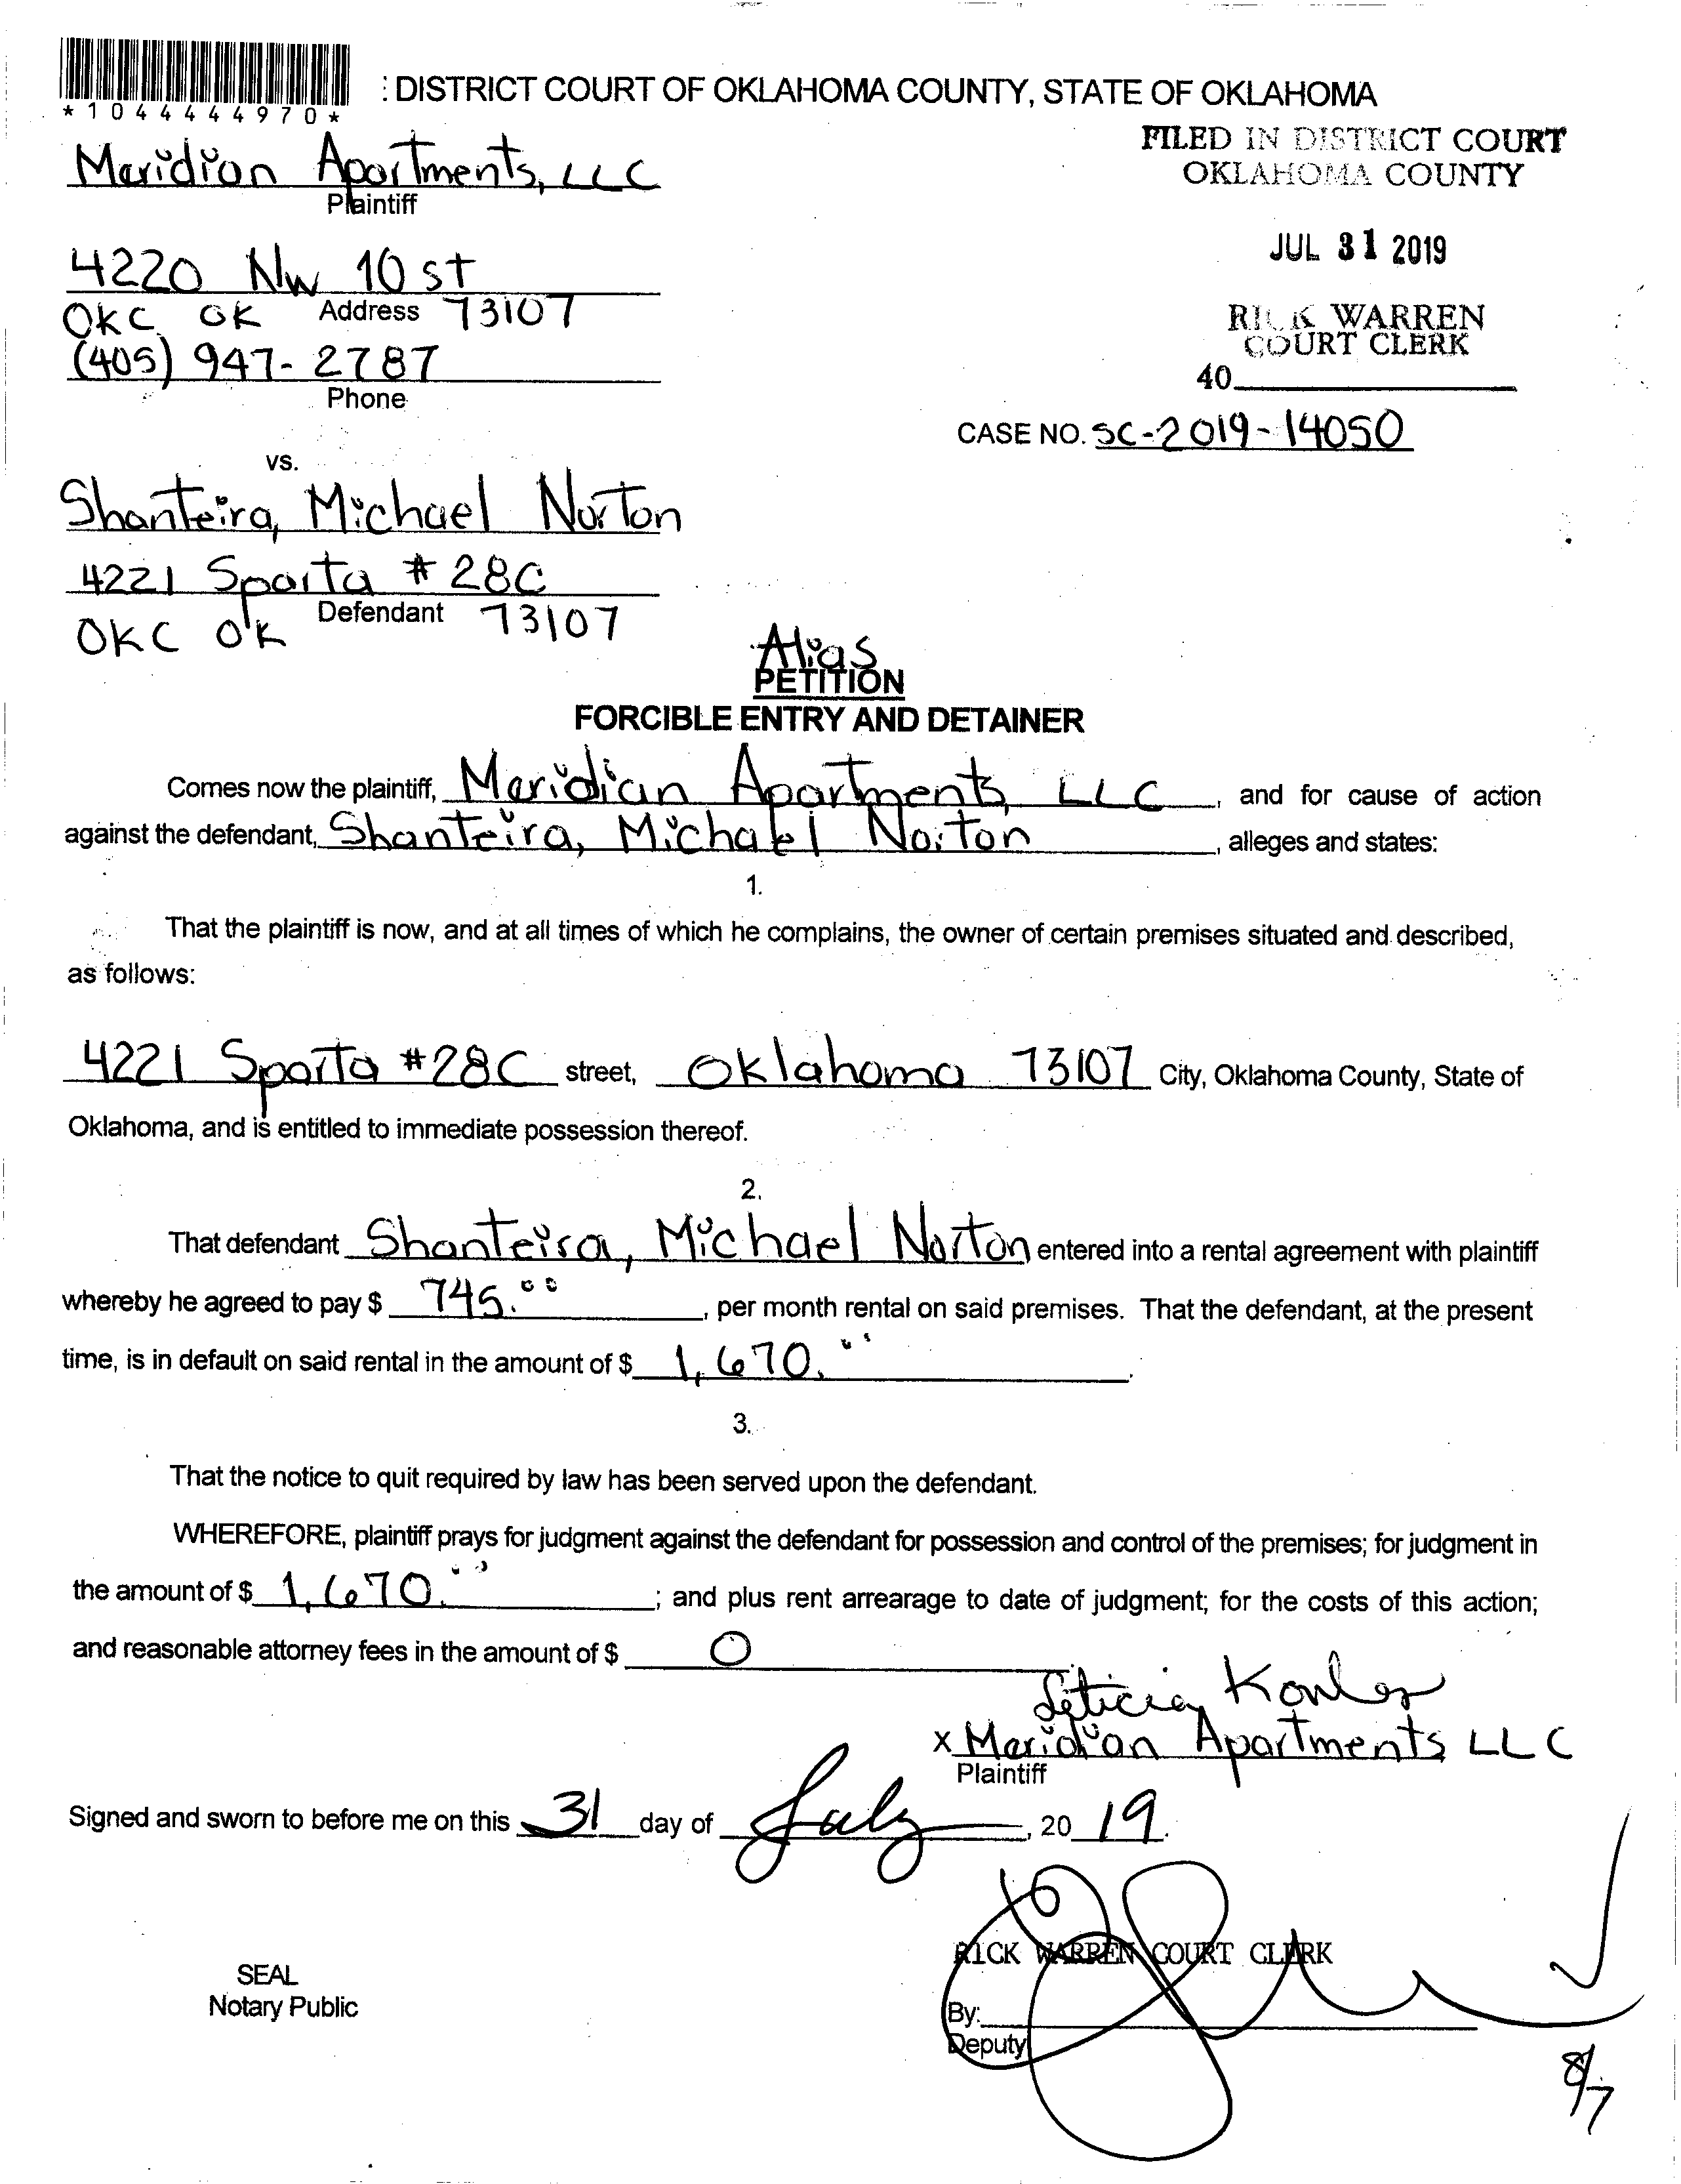 *1044444970*
: DISTRICT COURT OF OKLAHOMA COUNTY, STATE OF OKLAHOMA
FILED IN DISTRICT COURT
OKLAHOMA COUNTY
JUL 31 2019
RICK WARREN
COURT CLERK
40
CASE NO. SC-2019-14050
Meridian Apartments, LLC
Plaintiff
4220 NW 10 st
Address
OKC OK 73107
(405) 947-2787
Phone
vs.
Shanteira, Michael Norton
4221 Sparta #28C
Defendant
OKC OK 73107
Alias
PETITION
FORCIBLE ENTRY AND DETAINER
Comes now the plaintiff, Meridian Apartments, LLC, and for cause of action
against the defendant, Shanteira, Michael Norton, alleges and states:
1.
That the plaintiff is now, and at all times of which he complains, the owner of certain premises situated and described,
as follows:
4221 Sparta #28C street, Oklahoma 73107 City, Oklahoma County, State of
Oklahoma, and is entitled to immediate possession thereof.
2.
That defendant Shanteira, Michael Norton entered into a rental agreement with plaintiff
whereby he agreed to pay $ 745.00, per month rental on said premises. That the defendant, at the present
time, is in default on said rental in the amount of $ 1,670.00.
3.
That the notice to quit required by law has been served upon the defendant.
WHEREFORE, plaintiff prays for judgment against the defendant for possession and control of the premises; for judgment in
the amount of $ 1,670.00; and plus rent arrearage to date of judgment; for the costs of this action;
and reasonable attorney fees in the amount of $ 0
Leticia
x Meridian Apartments LLC
Plaintiff
Signed and sworn to before me on this 31 day of July, 2019.
RICK WARREN COURT CLERK
SEAL
Notary Public
By:
Deputy
8/7